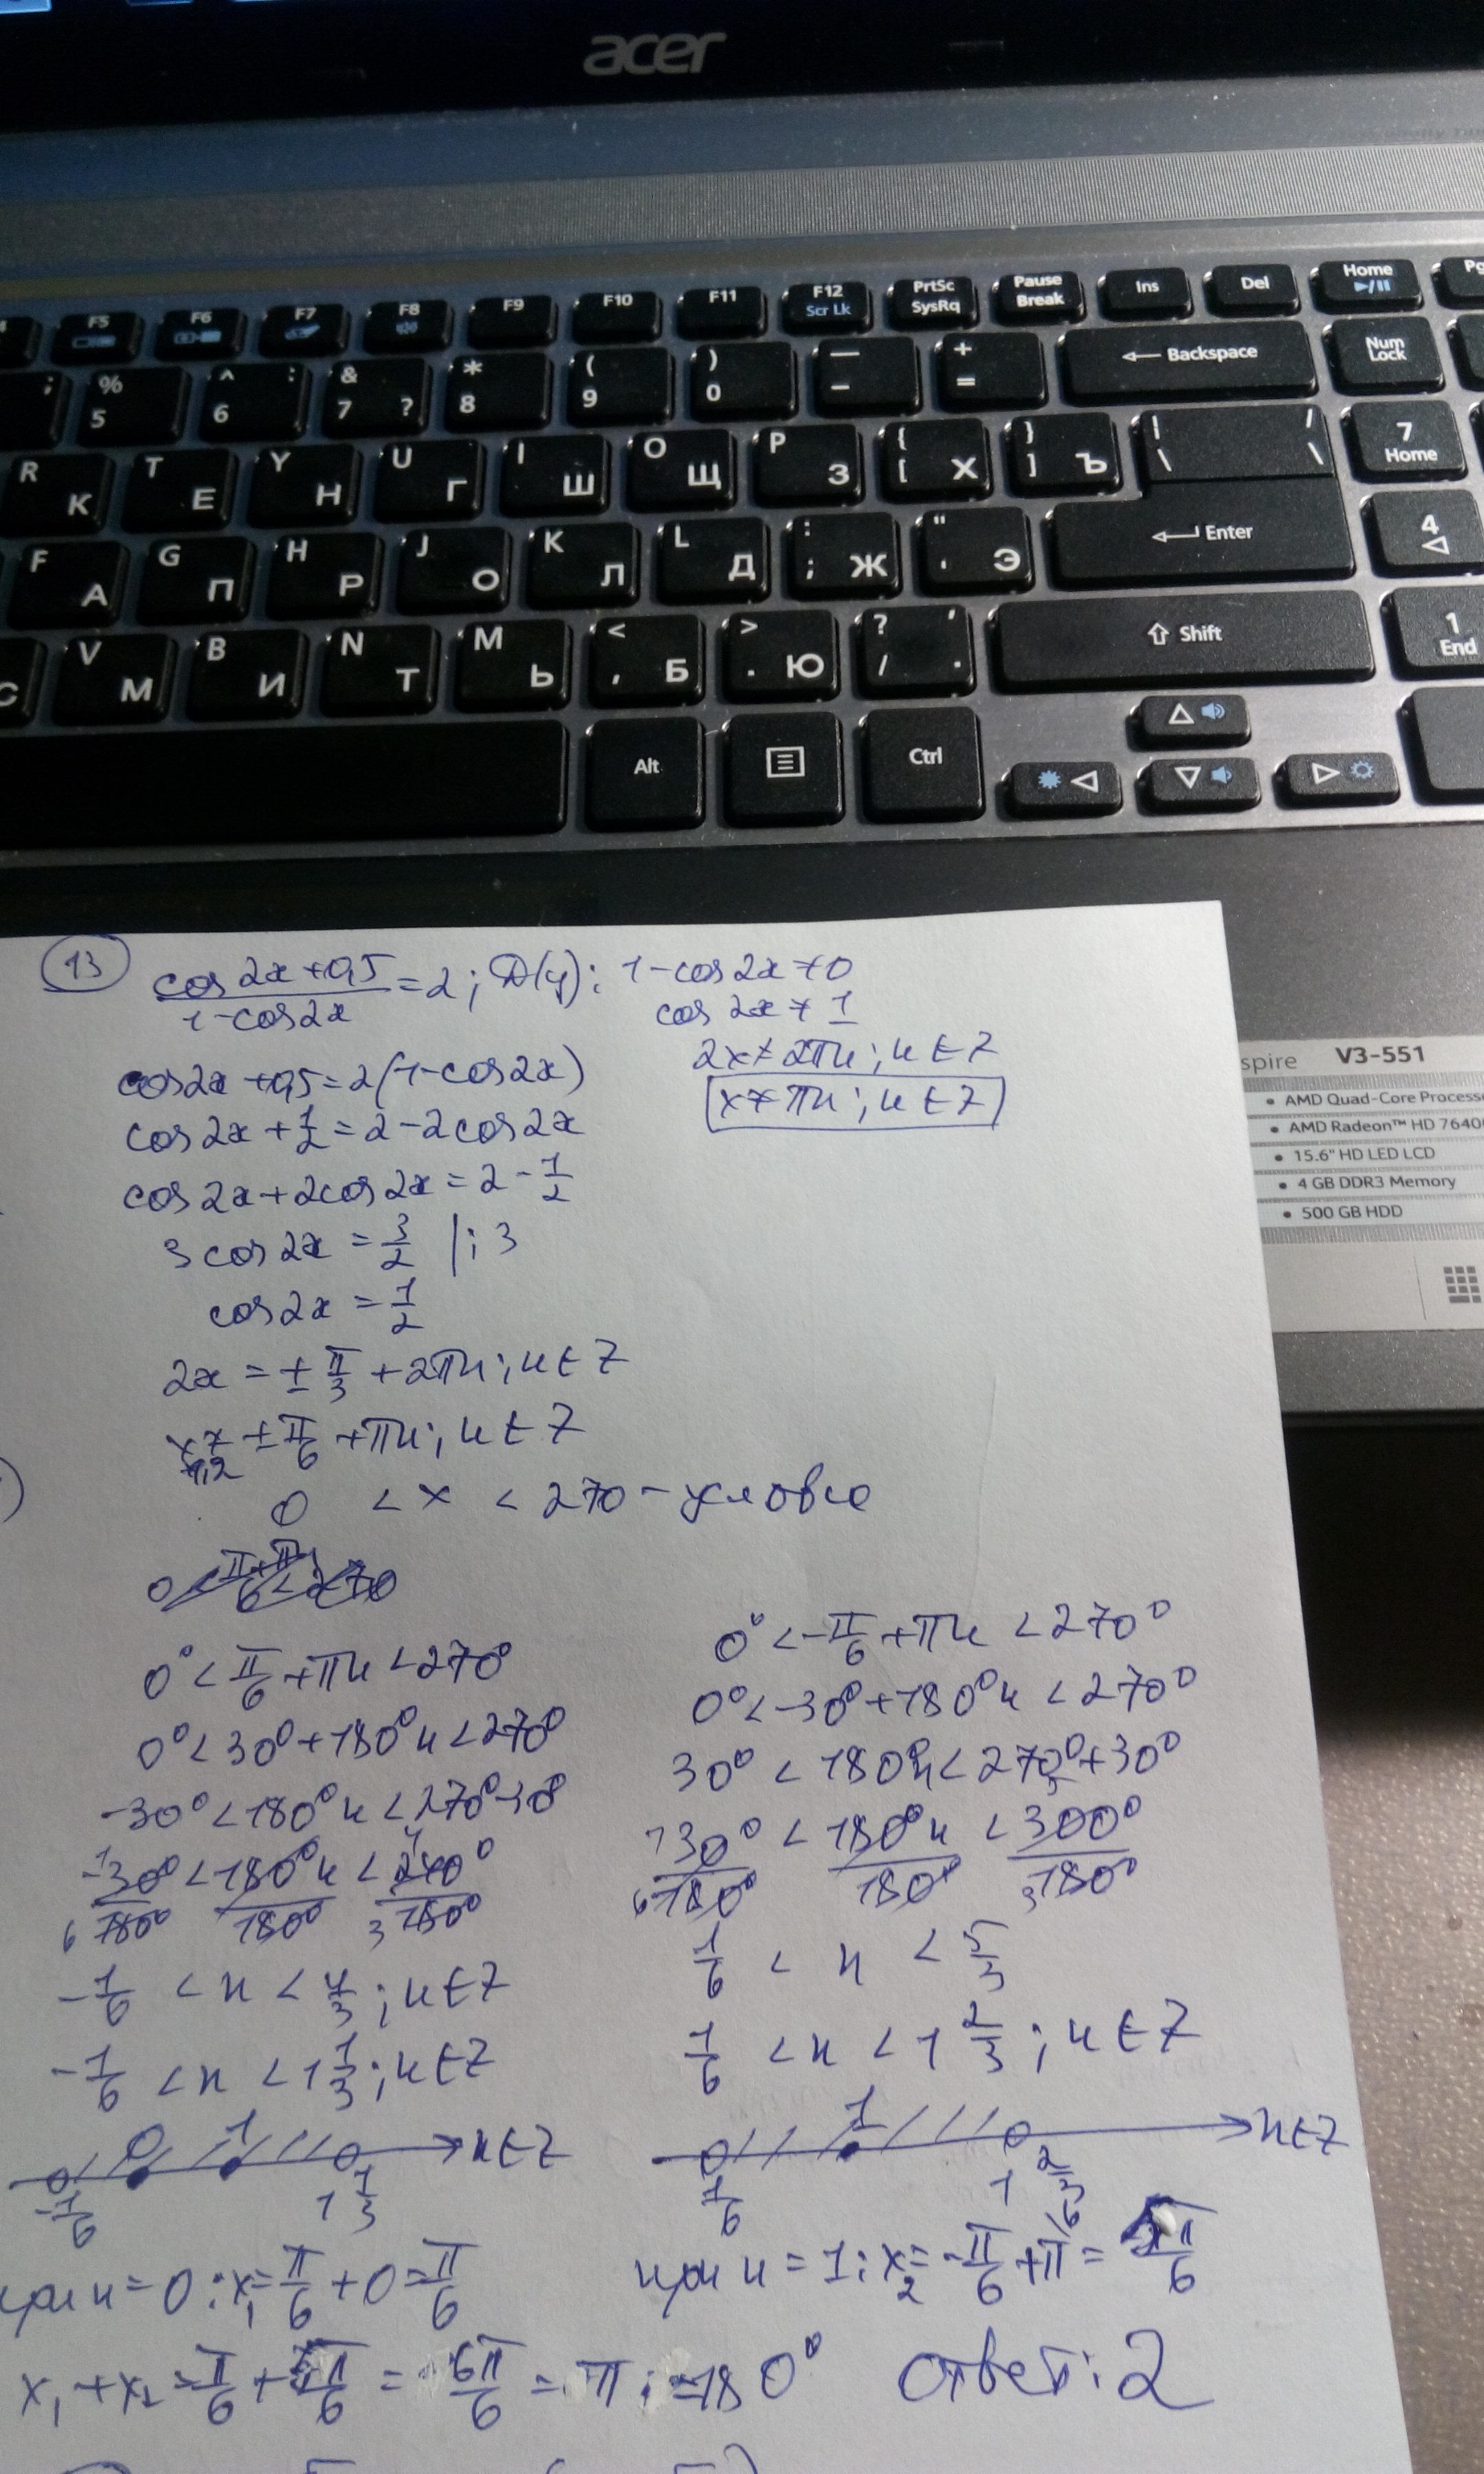 acer
F5 F6 F7 F8 F9 F10 F11 F12 Scr Lk PrtSc SysRq Pause Break Ins Del Home
% 5 ^ : 6 & 7 ? * 8 ( 9 ) 0 — - + = Backspace Num Lock
R К T Е Y Н U Г I Ш O Щ P З { [ Х } ] Ъ | \ / \ 7 Home
F А G П H Р J О K Л L Д : ; Ж " ' Э Enter 4
С V М B И N Т M Ь < , Б > . Ю ? / , . Shift 1 End
Alt Ctrl
spire V3-551
• AMD Quad-Core Process
• AMD Radeon™ HD 7640
• 15.6" HD LED LCD
• 4 GB DDR3 Memory
• 500 GB HDD
13 cos2x+0,5/1-cos2x = 2; D(y): 1-cos2x≠0
cos2x≠1
2x≠2πn; n∈Z
x≠πn; n∈Z
cos2x+0,5=2(1-cos2x)
cos2x+1/2=2-2cos2x
cos2x+2cos2x=2-1/2
3cos2x=3/2 |:3
cos2x=1/2
2x=±π/3+2πn; n∈Z
x1,2=±π/6+πn; n∈Z
0<x<270-условие
0°<π/6+πn<270°
0°<30°+180°n<270°
-30°<180°n<270°-30°
-30°/180°<180°n/180°<240°/180°
-1/6<n<4/3; n∈Z
-1/6<n<1 1/3; n∈Z
0 1 n∈Z
-1/6 1 1/3
при n=0: x1=π/6+0=π/6
0°<-π/6+πn<270°
0°<-30°+180°n<270°
30°<180°n<270°+30°
30°/180°<180°n/180°<300°/180°
1/6<n<5/3
1/6<n<1 2/3; n∈Z
1 n∈Z
1/6 1 2/3
при n=1: x2=-π/6+π=5π/6
x1+x2=π/6+5π/6=6π/6=π; =180° ответ: 2